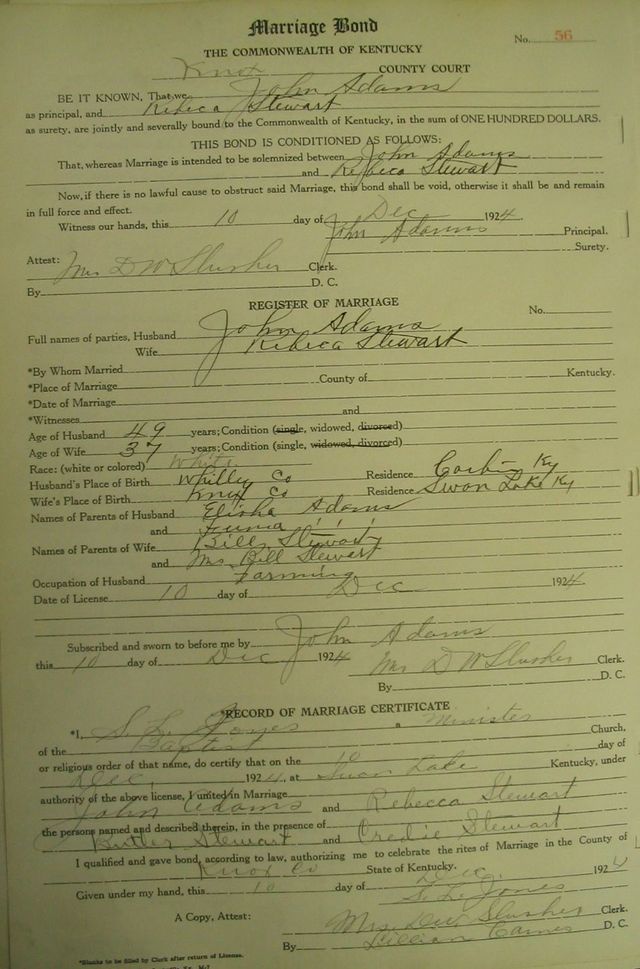 Marriage Bond
No. 56
THE COMMONWEALTH OF KENTUCKY
Knox COUNTY COURT
BE IT KNOWN, That we John Adams
as principal, and Rebeca Stewart
as surety, are jointly and severally bound to the Commonwealth of Kentucky, in the sum of ONE HUNDRED DOLLARS.
THIS BOND IS CONDITIONED AS FOLLOWS:
That, whereas Marriage is intended to be solemnized between John Adams
and Rebeca Stewart
Now, if there is no lawful cause to obstruct said Marriage, this bond shall be void, otherwise it shall be and remain
in full force and effect.
Witness our hands, this 10 day of Dec 1924
John Adams Principal.
Surety.
Attest:
Mrs D W Slusher Clerk.
By D. C.
REGISTER OF MARRIAGE
No.
Full names of parties, Husband John Adams
Wife Rebeca Stewart
*By Whom Married
*Place of Marriage County of Kentucky.
*Date of Marriage
*Witnesses and
Age of Husband 49 years; Condition (single, widowed, divorced)
Age of Wife 37 years; Condition (single, widowed, divorced)
Race: (white or colored) White
Husband's Place of Birth Whitley Co Residence Corbin Ky
Wife's Place of Birth Knox Co Residence Swan Lake Ky
Names of Parents of Husband Elisha Adams
and " "
Names of Parents of Wife Bill Stewart
and Mrs Bill Stewart
Occupation of Husband Farming
Date of License 10 day of Dec 1924
Subscribed and sworn to before me by John Adams
this 10 day of Dec 1924 Mrs D W Slusher Clerk.
By D. C.
*RECORD OF MARRIAGE CERTIFICATE
*I, S. L. Jones a Minister
of the Baptist Church,
or religious order of that name, do certify that on the 10 day of
Dec 1924, at Swan Lake Kentucky, under
authority of the above license, I united in Marriage
John Adams and Rebecca Stewart
the persons named and described therein, in the presence of
Butler Stewart and Credie Stewart
I qualified and gave bond, according to law, authorizing me to celebrate the rites of Marriage in the County of
Knox Co State of Kentucky.
Given under my hand, this 10 day of Dec. 1924
S. L. Jones
A Copy, Attest: Mrs. D.W. Slusher Clerk.
By Lillian D. C.
*Blanks to be filled by Clerk after return of License.